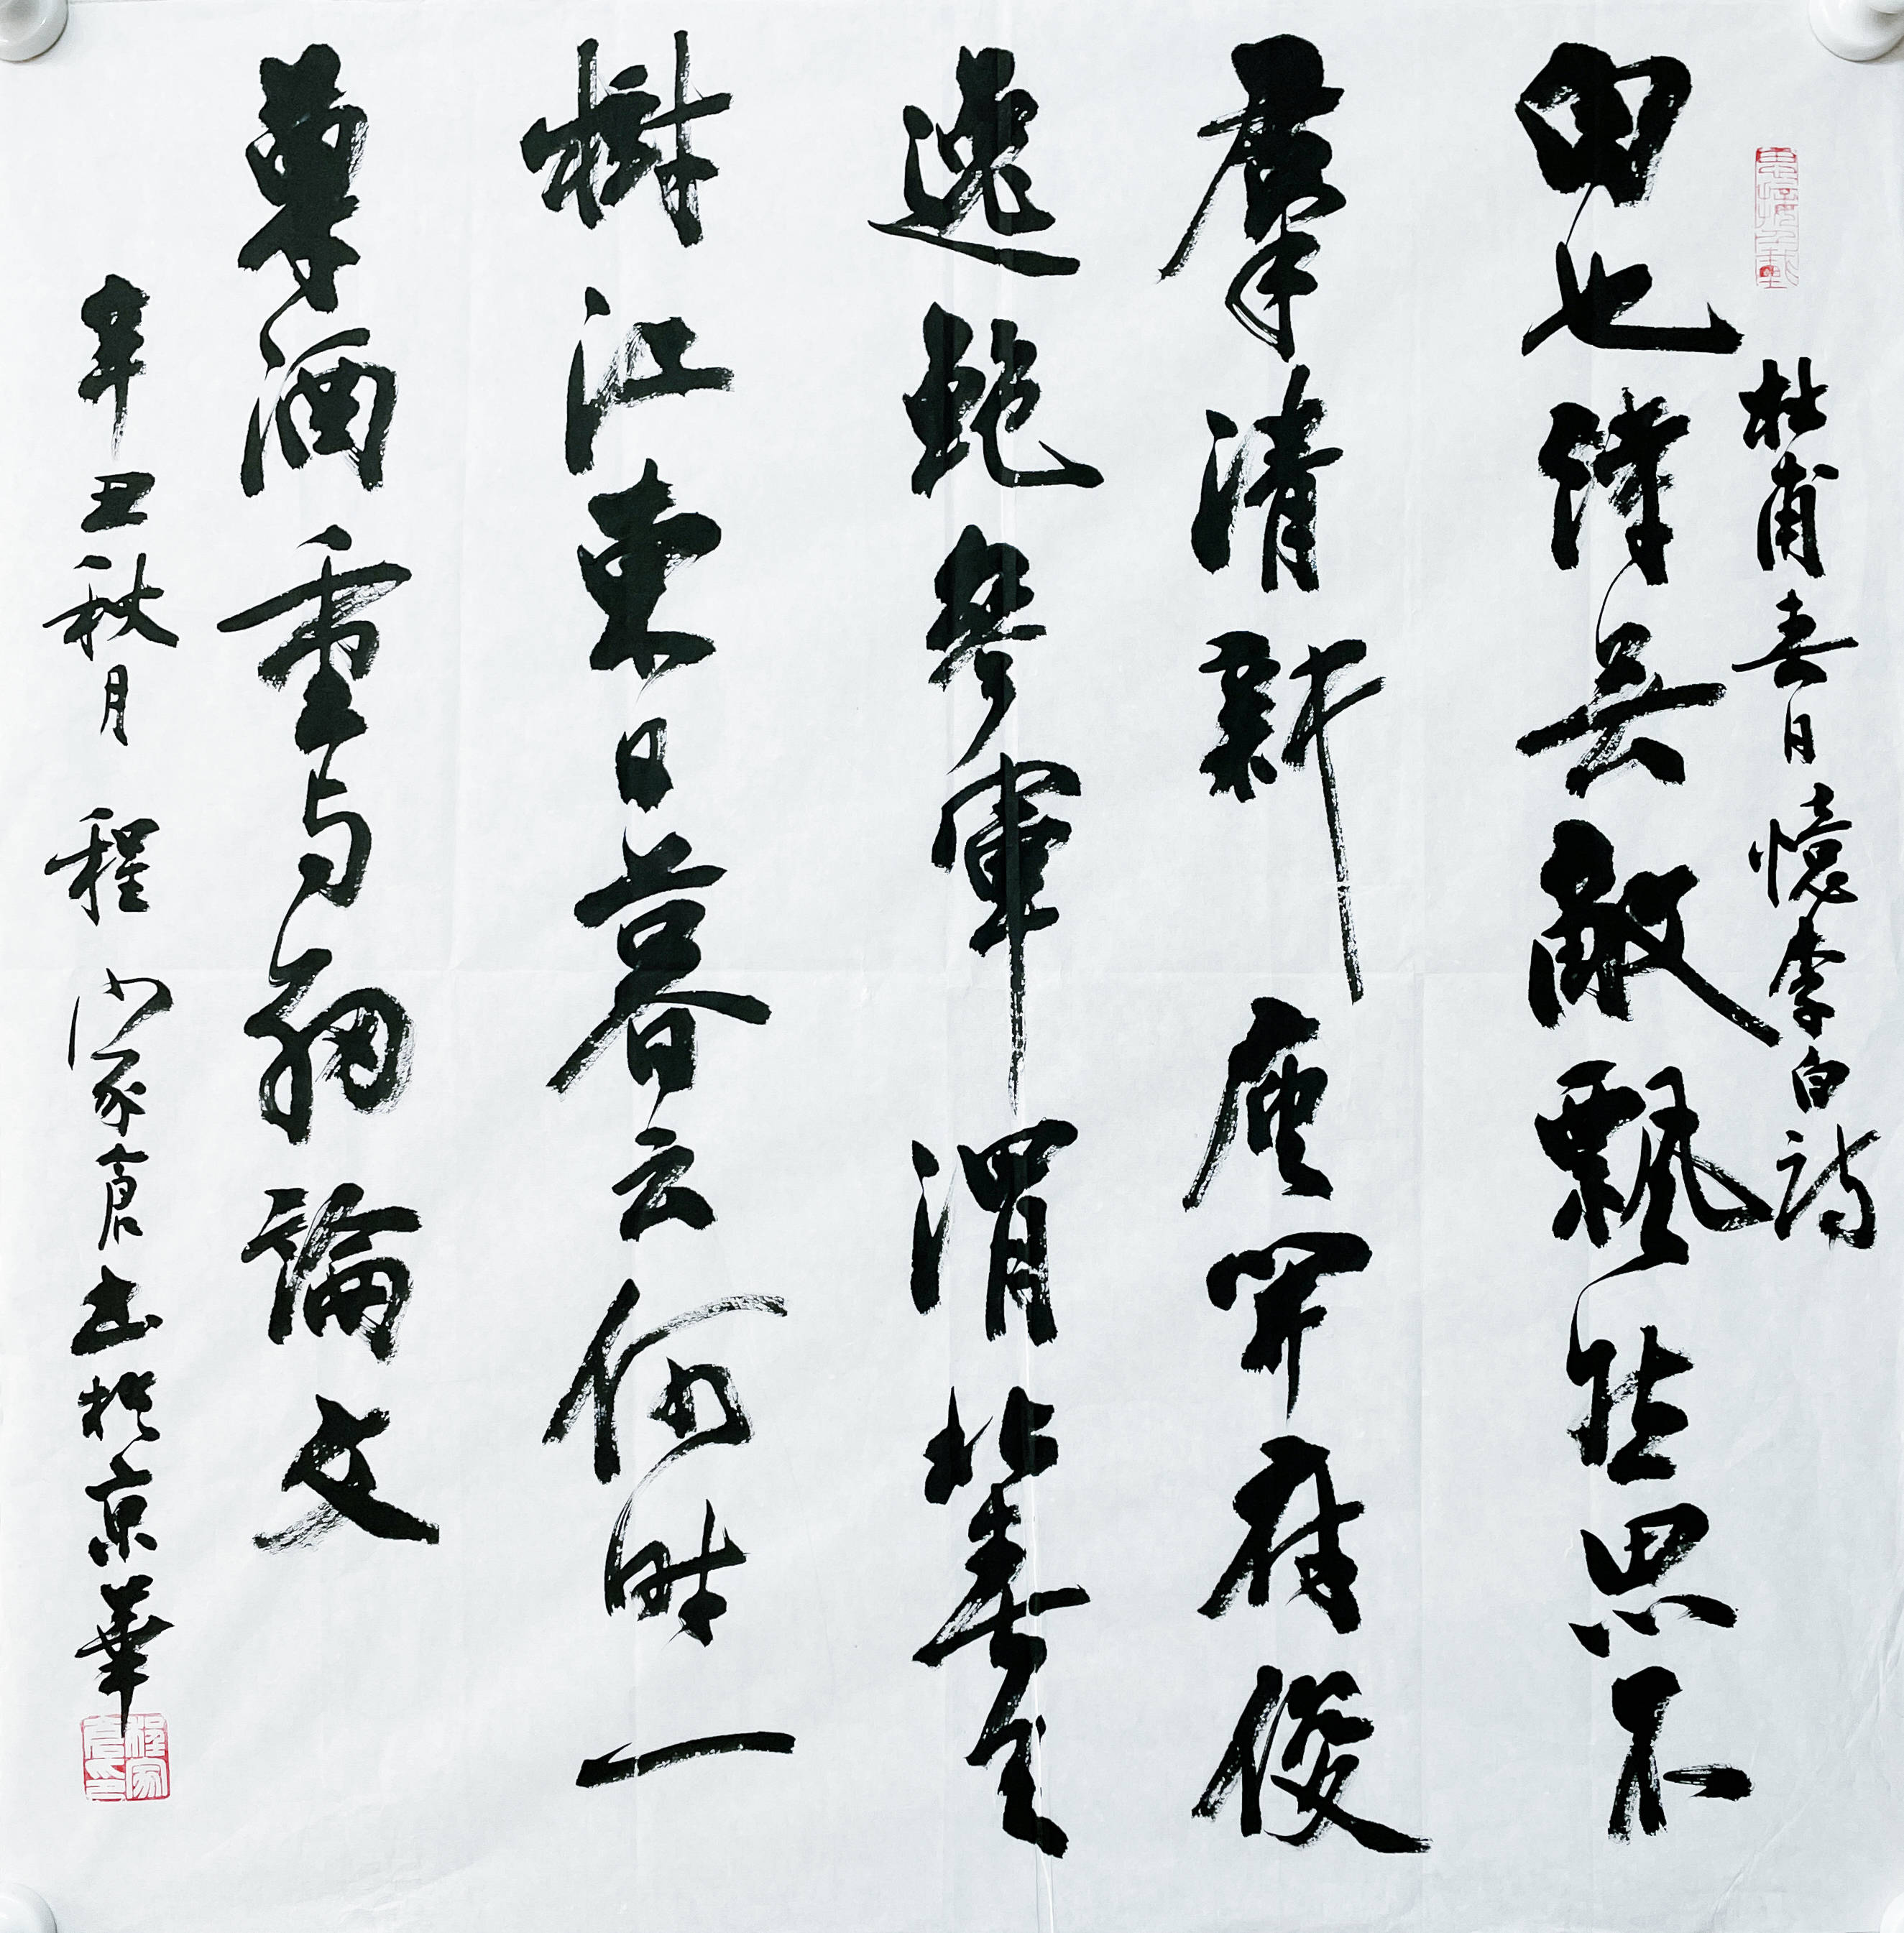 杜甫春日憶李白詩
白也詩無敵飄然思不
羣清新庾開府俊
逸鮑參軍渭北春天
樹江東日暮云何時一
尊酒重与細論文
辛丑秋月 程家倉書於京華